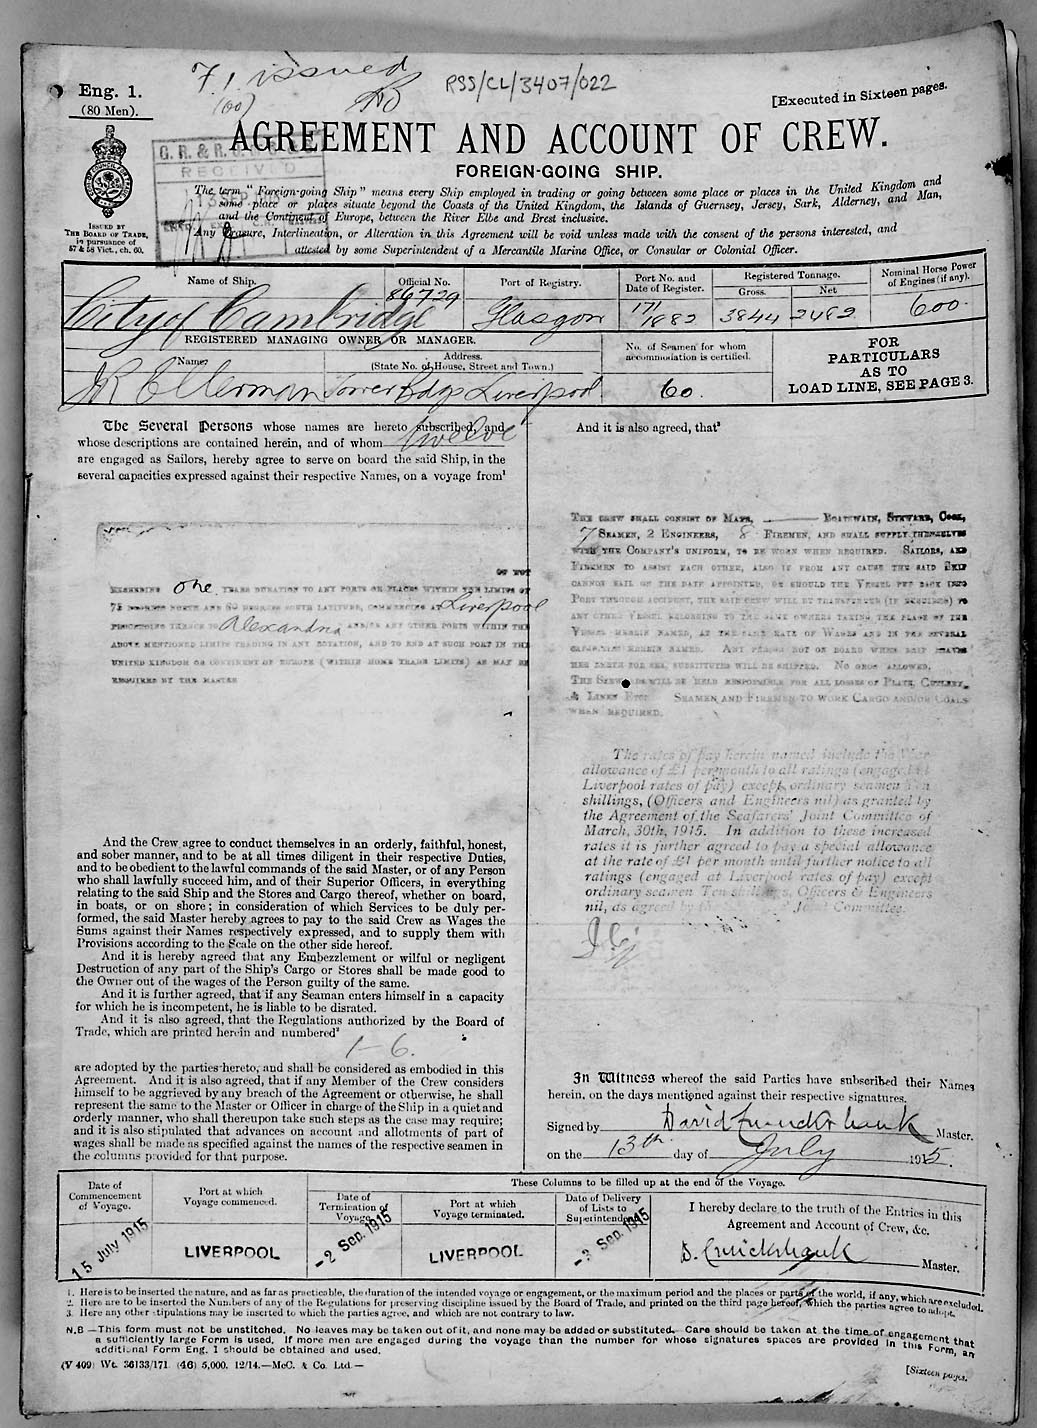 F.1. issued
(00)
RSS/CL/3407/022
Eng. 1.
(80 Men).
[Executed in Sixteen pages.
AGREEMENT AND ACCOUNT OF CREW.
FOREIGN-GOING SHIP.
RECEIVED
ISSUED BY
THE BOARD OF TRADE,
in pursuance of
57 & 58 Vict., ch. 60.
The term "Foreign-going Ship" means every Ship employed in trading or going between some place or places in the United Kingdom and
some place or places situate beyond the Coasts of the United Kingdom, the Islands of Guernsey, Jersey, Sark, Alderney, and Man,
and the Continent of Europe, between the River Elbe and Brest inclusive.
Any Erasure, Interlineation, or Alteration in this Agreement will be void unless made with the consent of the persons interested, and
attested by some Superintendent of a Mercantile Marine Office, or Consular or Colonial Officer.
Name of Ship. Official No. Port of Registry. Port No. and Date of Register. Registered Tonnage. Gross. Net Nominal Horse Power of Engines (if any).
City of Cambridge 86729 Glasgow 171/1882 3844 2482 600.
REGISTERED MANAGING OWNER OR MANAGER.
Name. Address. (State No. of House, Street and Town.)
No. of Seamen for whom accommodation is certified.
J R Ellerman Tower Bdgs Liverpool 60.
FOR
PARTICULARS
AS TO
LOAD LINE, SEE PAGE 3.
The Several Persons whose names are hereto subscribed, and
whose descriptions are contained herein, and of whom twelve
are engaged as Sailors, hereby agree to serve on board the said Ship, in the
several capacities expressed against their respective Names, on a voyage from¹
OF NOT
EXCEEDING one YEARS DURATION TO ANY PORTS OR PLACES WITHIN THE LIMITS OF
75 DEGREES NORTH AND 60 DEGREES SOUTH LATITUDE, COMMENCING AT Liverpool
PROCEEDING THENCE TO Alexandria AND/OR ANY OTHER PORTS WITHIN THE
ABOVE MENTIONED LIMITS TRADING IN ANY ROTATION, AND TO END AT SUCH PORT IN THE
UNITED KINGDOM OR CONTINENT OF EUROPE (WITHIN HOME TRADE LIMITS) AS MAY BE
REQUIRED BY THE MASTER
And the Crew agree to conduct themselves in an orderly, faithful, honest,
and sober manner, and to be at all times diligent in their respective Duties,
and to be obedient to the lawful commands of the said Master, or of any Person
who shall lawfully succeed him, and of their Superior Officers, in everything
relating to the said Ship and the Stores and Cargo thereof, whether on board,
in boats, or on shore; in consideration of which Services to be duly per-
formed, the said Master hereby agrees to pay to the said Crew as Wages the
Sums against their Names respectively expressed, and to supply them with
Provisions according to the Scale on the other side hereof.
And it is hereby agreed that any Embezzlement or wilful or negligent
Destruction of any part of the Ship's Cargo or Stores shall be made good to
the Owner out of the wages of the Person guilty of the same.
And it is further agreed, that if any Seaman enters himself in a capacity
for which he is incompetent, he is liable to be disrated.
And it is also agreed, that the Regulations authorized by the Board of
Trade, which are printed herein and numbered²
1-6.
are adopted by the parties hereto, and shall be considered as embodied in this
Agreement. And it is also agreed, that if any Member of the Crew considers
himself to be aggrieved by any breach of the Agreement or otherwise, he shall
represent the same to the Master or Officer in charge of the Ship in a quiet and
orderly manner, who shall thereupon take such steps as the case may require;
and it is also stipulated that advances on account and allotments of part of
wages shall be made as specified against the names of the respective seamen in
the columns provided for that purpose.
And it is also agreed, that³
THE CREW SHALL CONSIST OF MATE, BOATSWAIN, STEWARD, COOK,
7 SEAMEN, 2 ENGINEERS, 8 FIREMEN, AND SHALL SUPPLY THEMSELVES
WITH THE COMPANY'S UNIFORM, TO BE WORN WHEN REQUIRED. SAILORS, AND
FIREMEN TO ASSIST EACH OTHER, ALSO IF FROM ANY CAUSE THE SAID SHIP
CANNOT SAIL ON THE DATE APPOINTED, OR SHOULD THE VESSEL PUT BACK INTO
PORT THROUGH ACCIDENT, THE SAID CREW WILL BE TRANSFERRED (IF REQUIRED) TO
ANY OTHER VESSEL BELONGING TO THE SAME OWNERS TAKING THE PLACE OF THE
VESSEL HEREIN NAMED, AT THE SAME RATE OF WAGES AND IN THE SEVERAL
CAPACITIES HEREIN NAMED. ANY PERSON NOT ON BOARD WHEN SHIP LEAVES
HER BERTH FOR SEA, SUBSTITUTES WILL BE SHIPPED. NO GROG ALLOWED.
THE STEWARDS WILL BE HELD RESPONSIBLE FOR ALL LOSSES OF PLATE, CUTLERY,
& LINEN ETC. SEAMEN AND FIREMEN TO WORK CARGO AND/OR COALS
WHEN REQUIRED.
The rates of pay herein named include the War
allowance of £1 per month to all ratings (engaged at
Liverpool rates of pay) except ordinary seamen ten
shillings, (Officers and Engineers nil) as granted by
the Agreement of the Seafarers' Joint Committee of
March, 30th, 1915. In addition to these increased
rates it is further agreed to pay a special allowance
at the rate of £1 per month until further notice to all
ratings (engaged at Liverpool rates of pay) except
ordinary seamen Ten shillings, Officers & Engineers
nil, as agreed by the Joint Committee.
In Witness whereof the said Parties have subscribed their Names
herein, on the days mentioned against their respective signatures.
Signed by David Cruickshank Master.
on the 13th day of July 1915.
These Columns to be filled up at the end of the Voyage.
Date of Commencement of Voyage. Port at which Voyage commenced. Date of Termination of Voyage. Port at which Voyage terminated. Date of Delivery of Lists to Superintendent
15 July 1915 LIVERPOOL -2 Sep. 1915 LIVERPOOL -3 Sep. 1915
I hereby declare to the truth of the Entries in this
Agreement and Account of Crew, &c.
D. Cruickshank Master.
1. Here is to be inserted the nature, and as far as practicable, the duration of the intended voyage or engagement, or the maximum period and the places or parts of the world, if any, which are excluded.
2. Here are to be inserted the Numbers of any of the Regulations for preserving discipline issued by the Board of Trade, and printed on the third page hereof, which the parties agree to adopt.
3. Here any other stipulations may be inserted to which the parties agree, and which are not contrary to law.
N.B—This form must not be unstitched. No leaves may be taken out of it, and none may be added or substituted. Care should be taken at the time of engagement that
a sufficiently large Form is used. If more men are engaged during the voyage than the number for whose signatures spaces are provided in this Form, an
additional Form Eng. 1 should be obtained and used.
(V 409) Wt. 36133/171 (46) 5,000. 12/14.—McC. & Co. Ltd.—
[Sixteen pages.